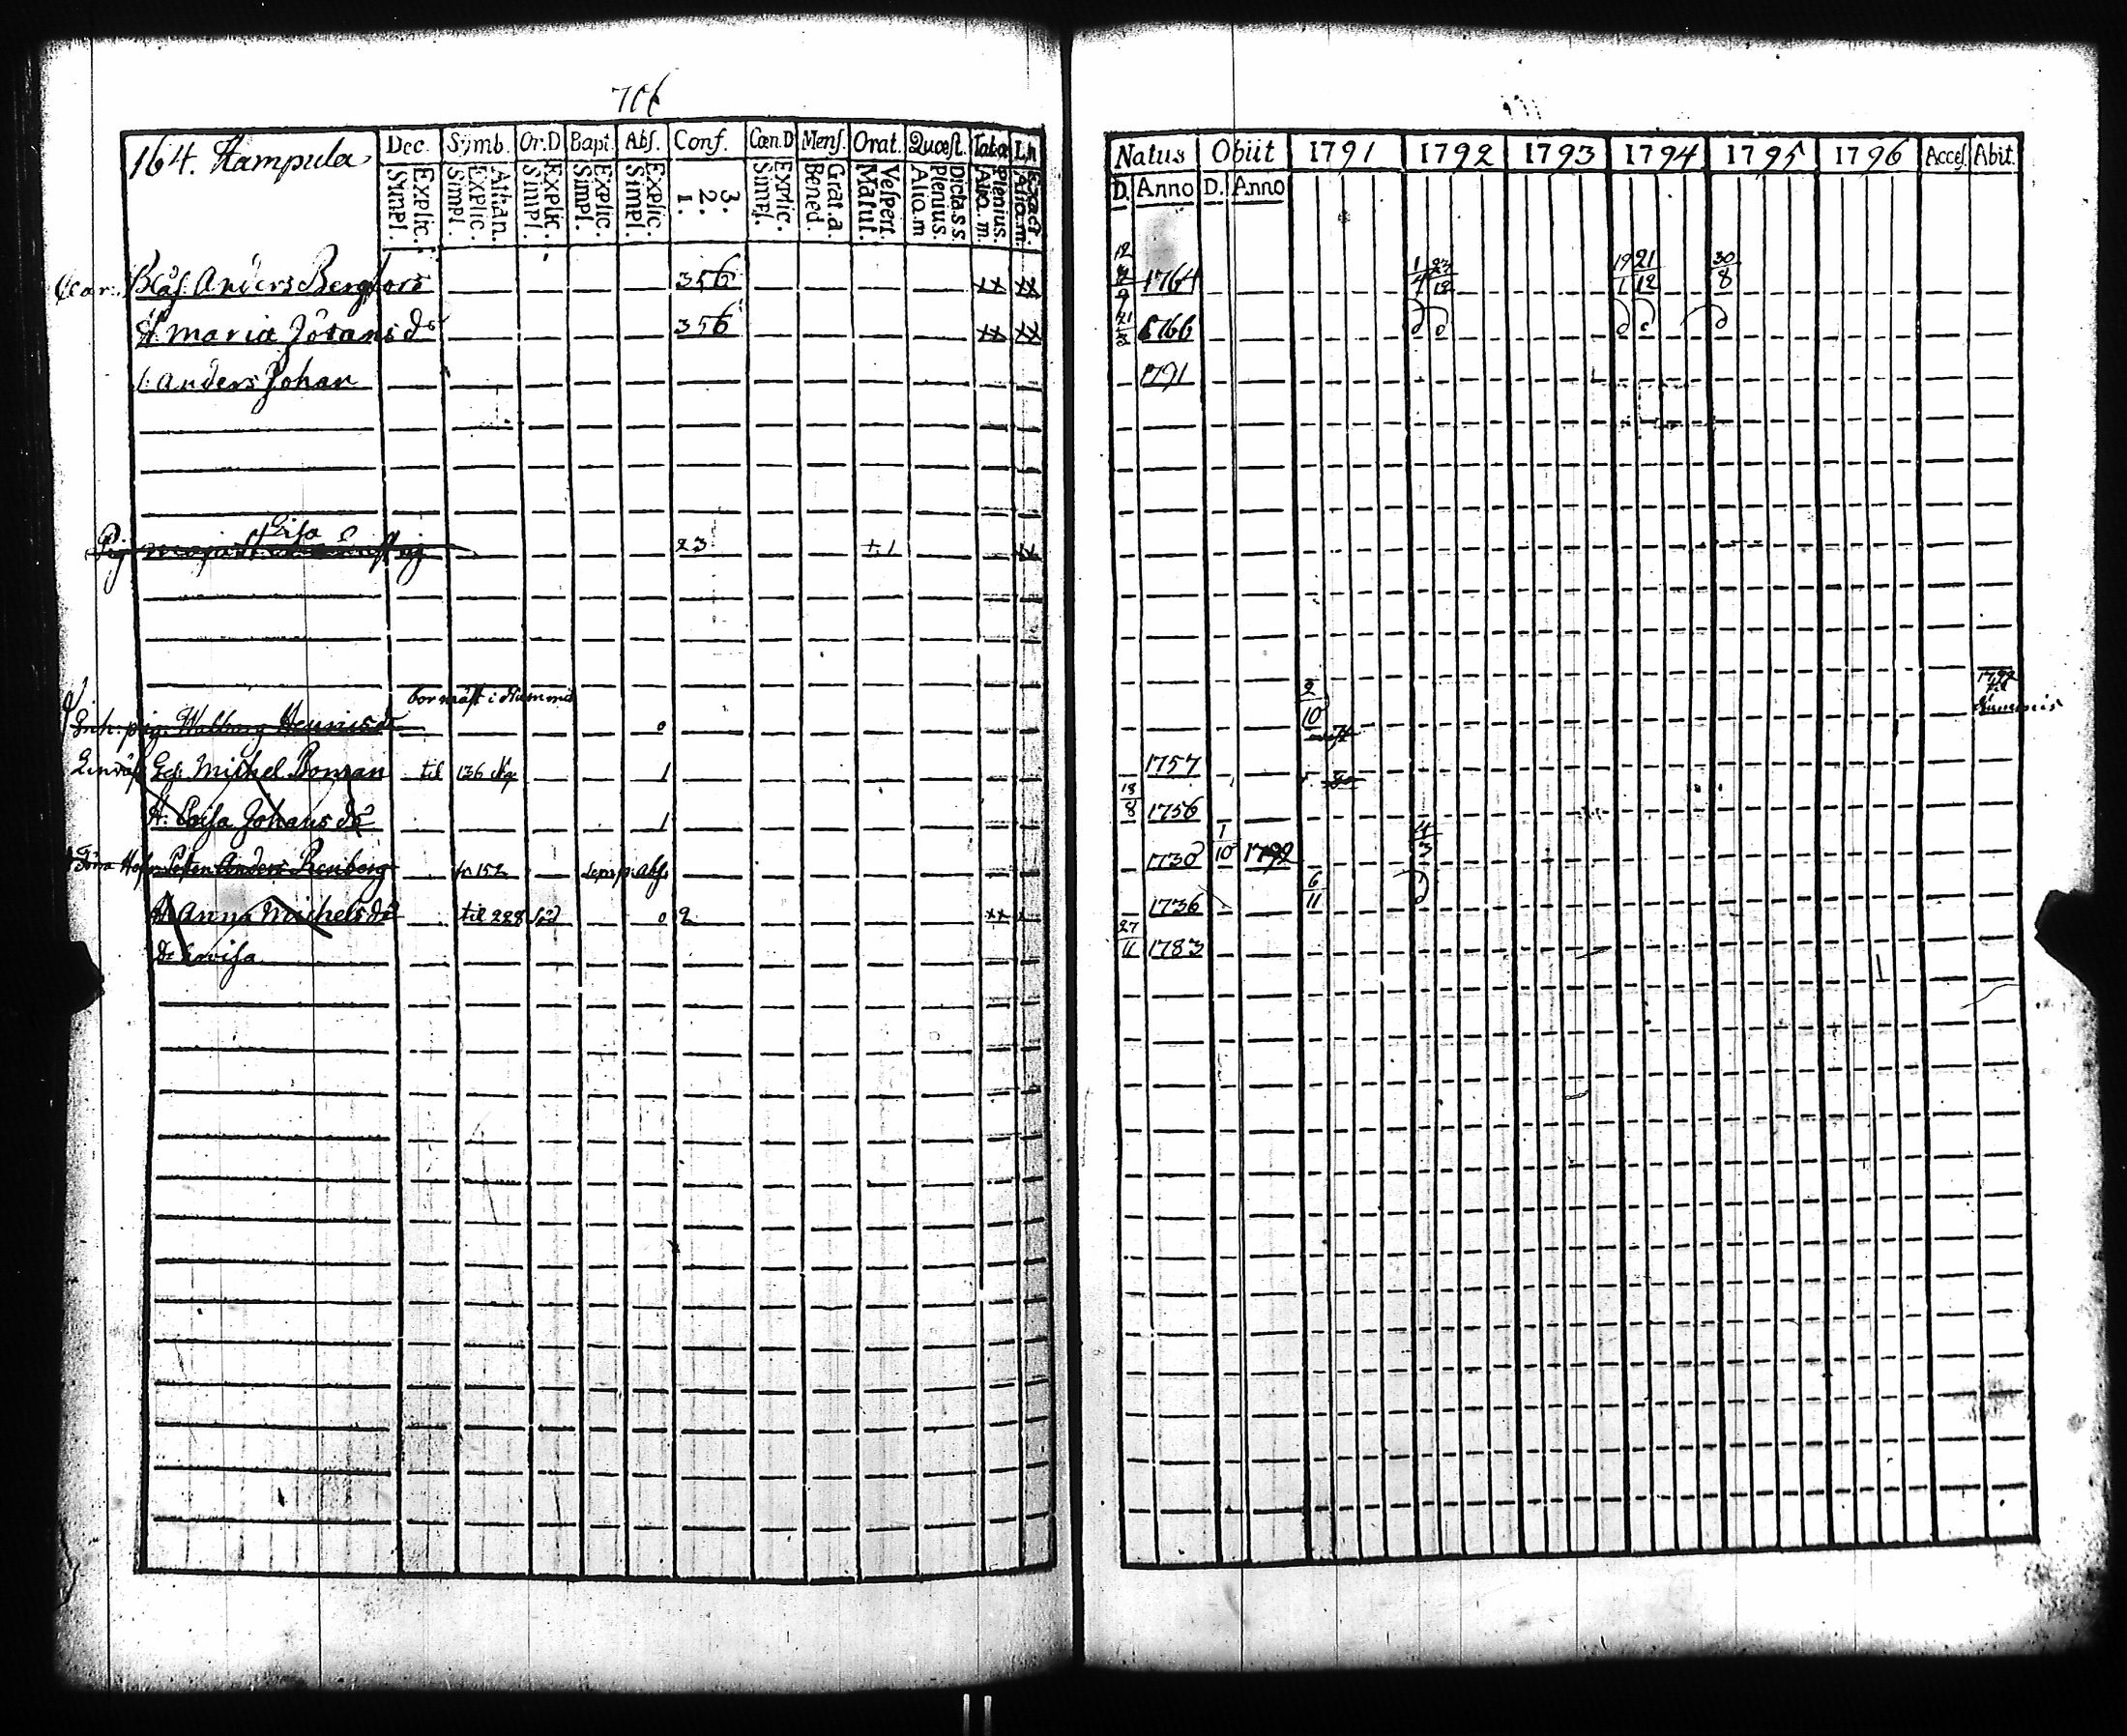 706
164. Kampula Dec. Symb. Or.D Bapt. Abs. Conf. Cœn.D Mens. Orat. Quœst. Taba
Explic. Simpl. Athan. Explic. Simpl. Explic. Simpl. Explic. Simpl. Explic. Simpl. 3. 2. 1. Explic. Simpl. Grat.a. Bened. Vespert. Matut. Dicta s.s. Plenius. Alio.m Plenius. Alio.m. Exact. Alio.m.
Anders Bergfors 356 xx xx
H. Maria Jörans dr 356 xx xx
s. Anders Johan
Lisa
Pig 23 +1 xx
bor mäst i Nummis
Inh. pig. Walborg Henrics dr 0
Michel Boman til 136 1
H. Lovisa Johans dr 1
Anders Renborg fr 152 abs.
H. Anna Michels dr til 228 0 2 xx
dr Lovisa
Natus Obiit 1791 1792 1793 1794 1795 1796 Acces. Abit.
D. Anno D. Anno
12 9 1764 1/4 23/12 19/1 21/12 30/8
21/3 1766
1791
2/10 1792 til Nummis
1757
18/8 1756
1730 1/10 1792 4/3
1736 6/11
27/11 1783